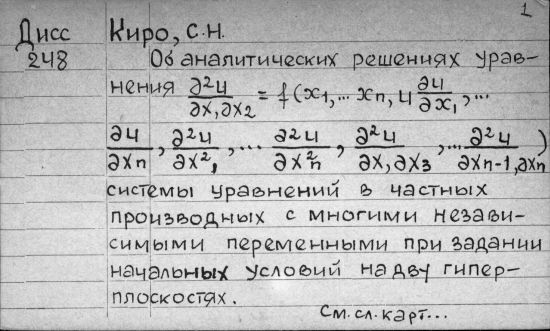 1
Дисс Киро, С.Н.
248 Об аналитических решениях урав-
нения ∂²u/∂x₁∂x₂ = f(x₁,... xn, u ∂u/∂x₁,...
∂u/∂xn, ∂²u/∂x²₁, ... ∂²u/∂x²n, ∂²u/∂x₁∂x₃, ... ∂²u/∂xn-1,∂xn)
системы уравнений в частных
производных с многими незави-
симыми переменными при задании
начальных условий на дву гипер-
плоскостях.
См. сл. карт...